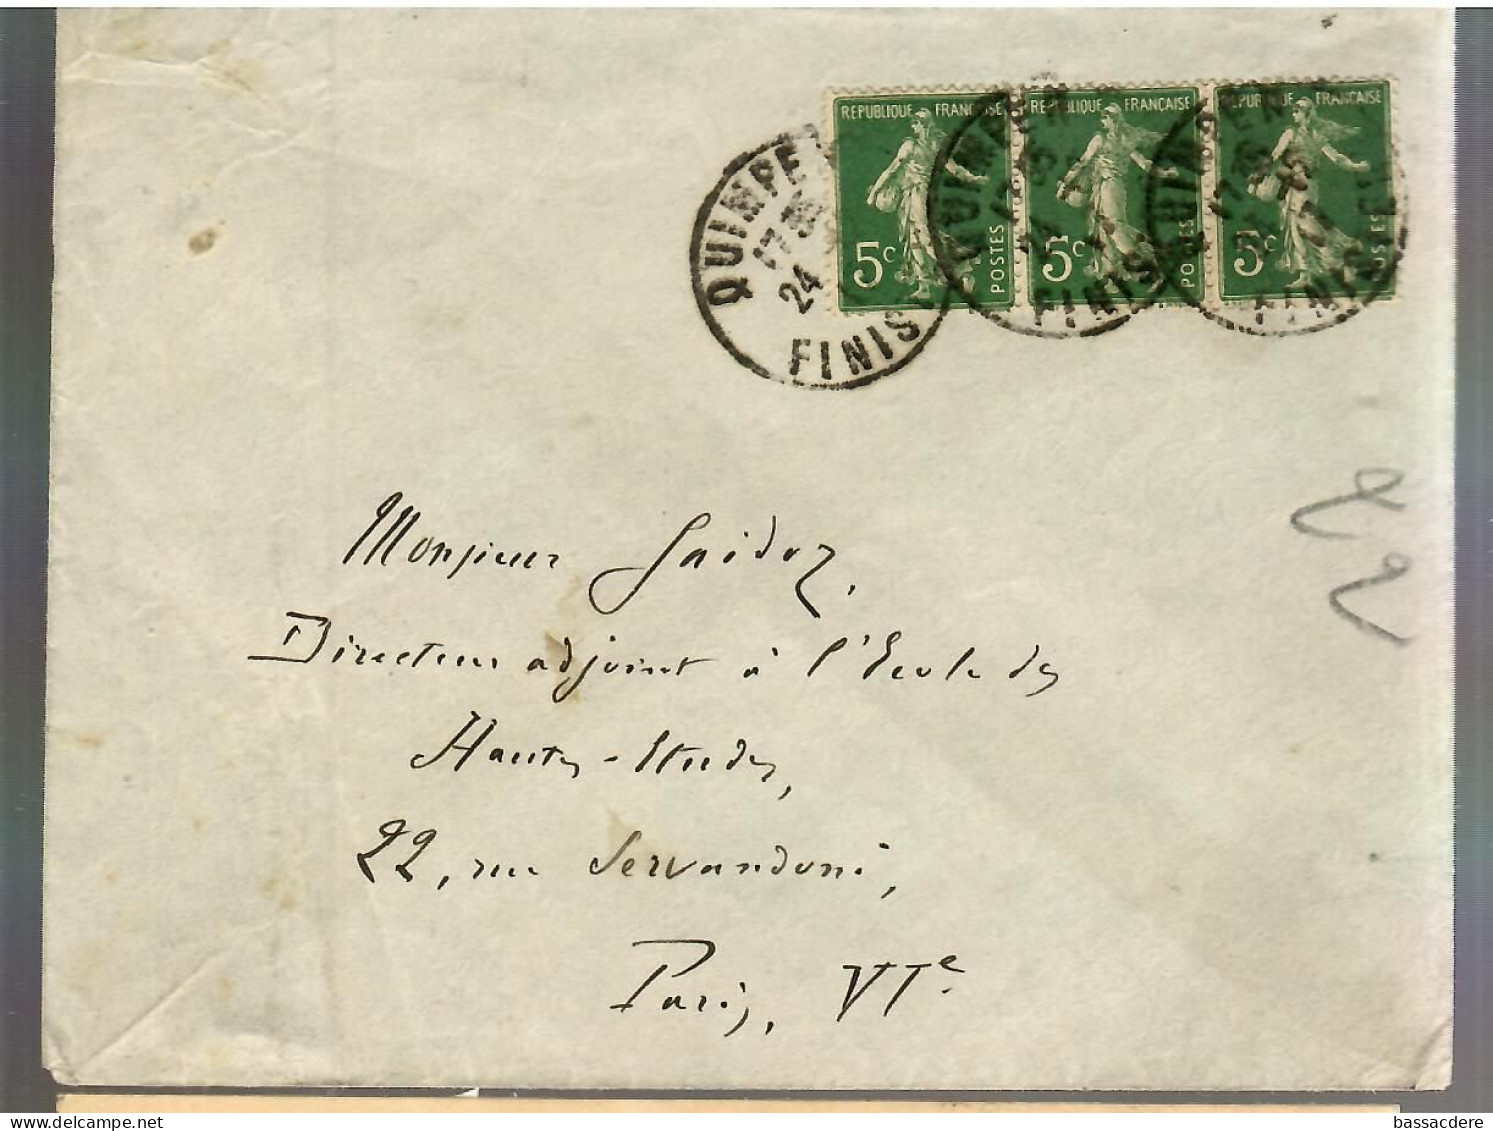 REPUBLIQUE FRANÇAISE
REPUBLIQUE FRANÇAISE
REPUBLIQUE FRANÇAISE
5c POSTES
5c POSTES
5c POSTES
QUIMPE
17 30
24
FINIS
QUIMPER
FINIS
QUIMPER
FINIS
Monsieur Gaidoz,
Directeur adjoint à l'Ecole des
Hautes-Etudes,
22, rue Servandoni,
Paris, VIe
delcampe.net
bassacdere